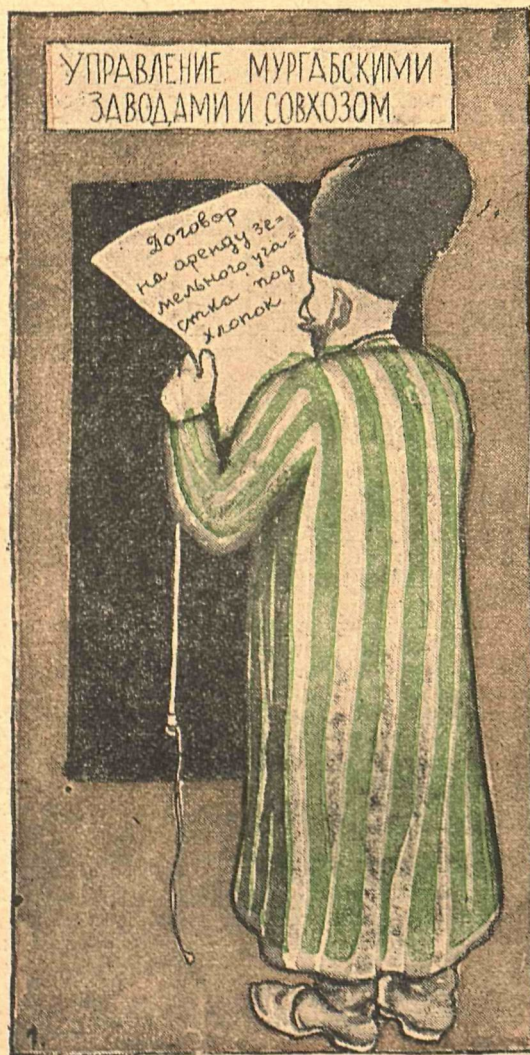 УПРАВЛЕНИЕ МУРГАБСКИМИ
ЗАВОДАМИ И СОВХОЗОМ.
Договор
на аренду зе=
мельного уча=
стка под
хлопок
1.